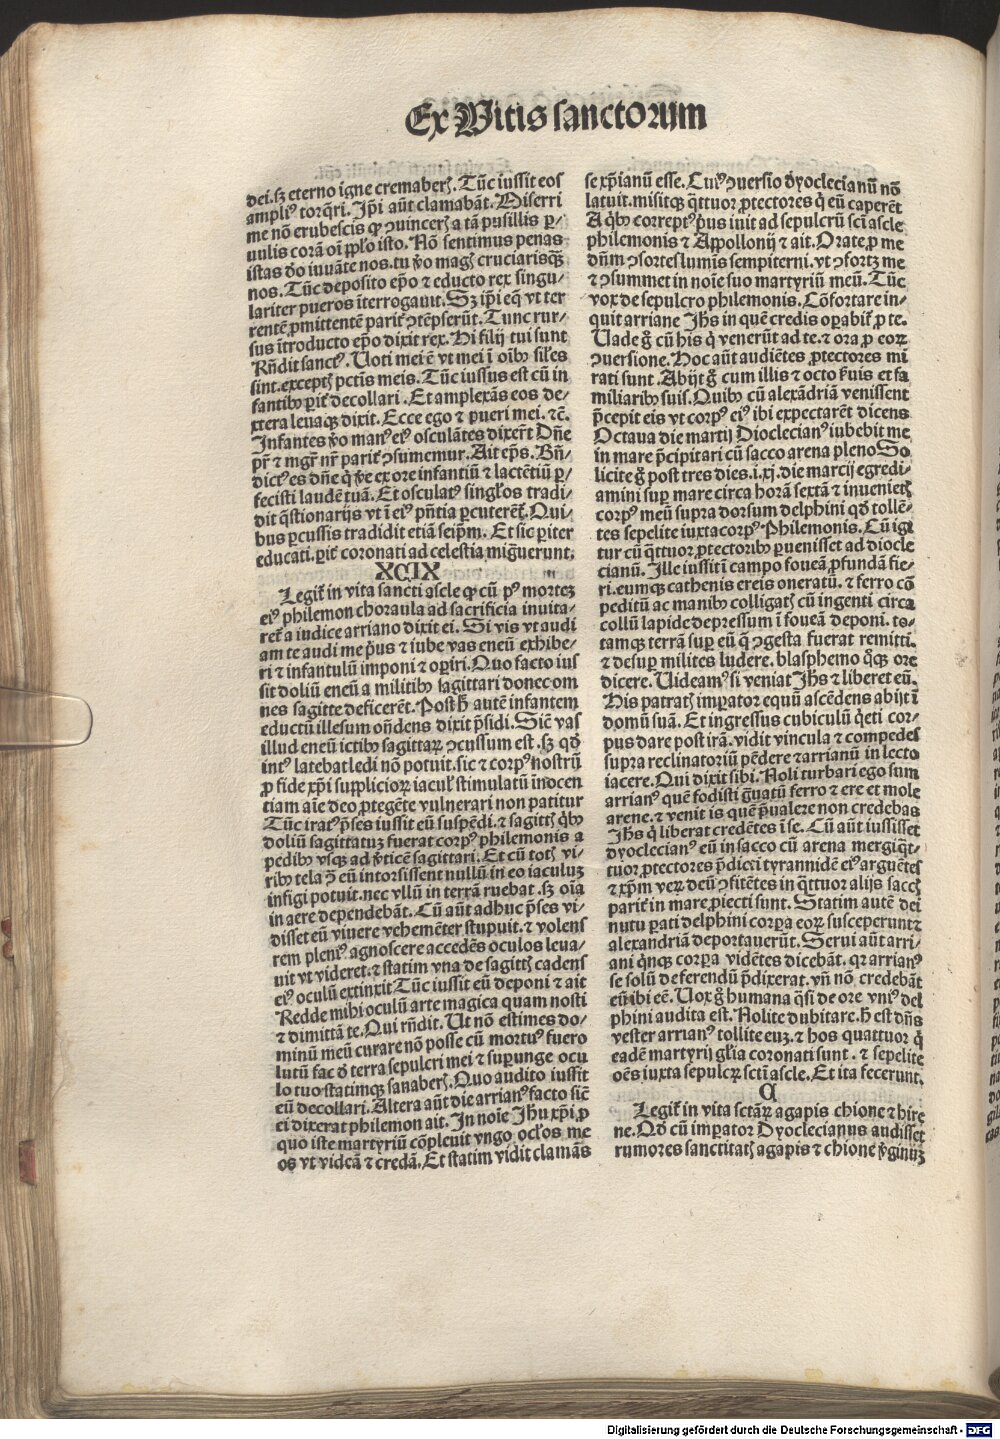 Ex Vitis sanctorum
dei. sꝫ eterno igne cremaberꝭ. Tūc iussit eos
ampliꝰ torq̄ri. Ip̄i aūt clamabāt. Miserri
me nō erubescis ꝙ ꝯuincerꝭ a tā pusillis ꝑ⸗
uulis corā oī pp̄lo isto. Nō sentimus penas
istas do iuuāte nos. tu v̄o magꝭ cruciarisqꝫ
nos. Tūc deposito ep̄o ⁊ educto rex singu⸗
lariter pueros īterrogauit. Sꝫ ip̄i eq̄ vt ter
rentē ꝓmittentē parit̄ ↄtēpserūt. Tunc rur⸗
sus ītroducto ep̄o dixit rex. Hi filij tui sunt
Rn̄dit sanctꝰ. Uoti mei ē vt mei ī oībꝰ sil̄es
sint. exceptꝭ pctīs meis. Tūc iussus est cū in
fantibꝰ ꝑit̄ decollari. Et amplexās eos de⸗
xtera leuaqꝫ dixit. Ecce ego ⁊ pueri mei. ⁊c̄.
Infantes v̄o manꝰ eiꝰ osculātes dixer̄t Dn̄e
pr̄ ⁊ mgr̄ nr̄ parit̄ ↄsumemur. Ait ep̄s. Bn̄⸗
dictꝰ es dn̄e q̄ ꝟe ex ore infantiū ⁊ lactētiū ꝑ⸗
fecisti laudē tuā. Et osculatꝰ singl̓os tradi⸗
dit q̄stionarijs vt ī eiꝰ pn̄tia ꝑcuterēt. Qui⸗
bus ꝑcussis tradidit etiā seip̄m. Et sic ꝑiter
educati. ꝑit̄ coronati ad celestia migͣuerunt.
XCIX
Legit̄ in vita sancti ascle ꝙ cū pꝰ morteꝫ
eiꝰ philemon choraula ad sacrificia inuita⸗
ret̄ a iudice arriano dixit ei. Si vis vt audi
am te audi me p̄us ⁊ iube vas eneū exhibe⸗
ri ⁊ infantulū imponi ⁊ oꝑiri. Quo facto ius
sit doliū eneū a militibꝰ sagittari donec om
nes sagitte deficerēt. Posth̄ autē infantem
eductū illesum on̄dens dixit p̄sidi. Sic̄ vas
illud eneū ictibꝰ sagittaꝝ ↄcussum est. sꝫ qd̄
intꝰ latebat ledi nō potuit. sic ⁊ corpꝰ nostrū
ꝓ fide xp̄i supplicioꝝ iacul̓ stimulatū īnocen
tiam aīe deo ꝓtegēte vulnerari non patitur
Tūc iratꝰ p̄ses iussit eū suspēdi. ⁊ sagittꝭ q̄bꝰ
doliū sagittatuꝫ fuerat corpꝰ philemonis a
pedibꝰ vsqꝫ ad ꝟticē sagittari. Et cū totꝭ vi⸗
ribꝰ tela ꝯ̄ eū intorsissent nullū in eo iaculuꝫ
infigi potuit. nec vllū in terrā ruebat. sꝫ oīa
in aere dependebāt. Cū aūt adhuc p̄ses vi⸗
disset eū viuere vehemēter stupuit. ⁊ volens
rem pleniꝰ agnoscere accedēs oculos leua⸗
uit vt videret. ⁊ statim vna de sagittꝭ cadens
eiꝰ oculū extinxit Tūc iussit eū deponi ⁊ ait
Redde mihi oculū arte magica quam nosti
⁊ dimittā te. Qui rn̄dit. Ut nō estimes do⸗
minū meū curare nō posse cū mortuꝰ fuero
lutū fac d̄ terra sepulcri mei ⁊ suꝑunge ocu
lo tuo statimqꝫ sanaberꝭ. Quo audito iussit
eū decollari. Altera aūt die arrianꝰ facto sic̄
ei dixerat philemon ait. In noīe Jh̄u xp̄i ꝓ
quo iste martyriū cōpleuit vngo ocl̓os me
os vt videā ⁊ credā. Et statim vidit clamās
se xp̄ianū esse. Cuiꝰ ↄuersio dyoclecianū nō
latuit. misitqꝫ q̄ttuor ꝓtectores q̄ eū caperēt
A q̄bꝰ correptꝰ p̄us iuit ad sepulcrū sct̄i ascle
philemonis ⁊ Appollonij ⁊ ait. Orate ꝓ me
dūm ↄsortes lumīs sempiterni. vt ↄfortꝫ me
⁊ ↄsummet in noīe suo martyriū meū. Tūc
vox de sepulcro philemonis. Cōfortare in⸗
quit arriane Jh̄s in quē credis oꝑabit̄ ꝓ te.
Uade g̊ cū his q̄ venerūt ad te. ⁊ ora ꝓ eoꝝ
ↄuersione. Hoc aūt audiētes ꝓtectores mi
rati sunt. Abijt g̊ cum illis ⁊ octo ẜuis ⁊ fa
miliaribꝰ suis. Quibꝰ cū alexādriā venissent
p̄cepit eis vt corpꝰ eiꝰ ibi expectarēt dicens
Octaua die martij Dioclecianꝰ iubebit me
in mare p̄cipitari cū sacco arena pleno So
licite g̊ post tres dies. i. xj. die marcij egredi⸗
amini suꝑ mare circa horā sextā ⁊ inuenietꝭ
corpꝰ meū supra dorsum delphini qd̄ tollē⸗
tes sepelite iuxta corpꝰ Philemonis. Cū igi
tur cū q̄ttuor ꝓtectoribꝰ ꝑuenisset ad diocle
cianū. Ille iussit ī campo foueā ꝓfundā fie⸗
ri. eumqꝫ cathenis ereis oneratū. ⁊ ferro cō
peditū ac manibꝰ colligatꝭ cū ingenti circa
collū lapide depressum ī foueā deponi. to⸗
tamqꝫ terrā suꝑ eū q̄ ↄgesta fuerat remitti.
⁊ desuꝑ milites ludere. blasphemo q̄qꝫ ore
dicere. Uideamꝰ si veniat Jh̄s ⁊ liberet eū.
His patratꝭ imꝑator equū ascēdens abijt ī
domū suā. Et ingressus cubiculū q̄eti cor⸗
pus dare post irā. vidit vincula ⁊ compedes
supra reclinatoriū pēdere ⁊ arrianū in lecto
iacere. Qui dixit sibi. Noli turbari ego sum
arrianꝰ quē fodisti gͣuatū ferro ⁊ ere et mole
arene. ⁊ venit is quē p̄ualere non credebas
Jh̄s q̄ liberat credētes ī se. Cū aūt iussisset
dyoclecianꝰ eū in sacco cū arena mergi q̄t⸗
tuor ꝓtectores p̄dicti tyrannidē eiꝰ arguētes
⁊ xp̄m veꝝ deū ↄfitētes in q̄ttuor alijs saccꝭ
parit̄ in mare ꝓiecti sunt. Statim autē dei
nutu ꝑati delphini corꝑa eoꝝ susceperunt ⁊
alexandriā deportauerūt. Serui aūt arri⸗
ani q̄nqꝫ corꝑa vidētes dicebāt. qꝛ arrianꝰ
se solū deferendū p̄dixerat. vn̄ nō credebāt
eū ibi eē. Uox g̊ humana q̄si de ore vniꝰ del
phini audita est. Nolite dubitare. h̄ est dn̄s
vester arrianꝰ tollite euꝫ. ⁊ hos quattuor q̄
eadē martyrij gl̓ia coronati sunt. ⁊ sepelite
oēs iuxta sepulcꝝ sct̄i ascle. Et ita fecerunt.
C
Legit̄ in vita sctāꝝ agapis chione ⁊ hire
ne. Qd̄ cū imꝑator Dyoclecianus audisset
rumores sanctitatꝭ agapis ⁊ chione ꝟginuꝫ
Digitalisierung gefördert durch die Deutsche Forschungsgemeinschaft - DFG